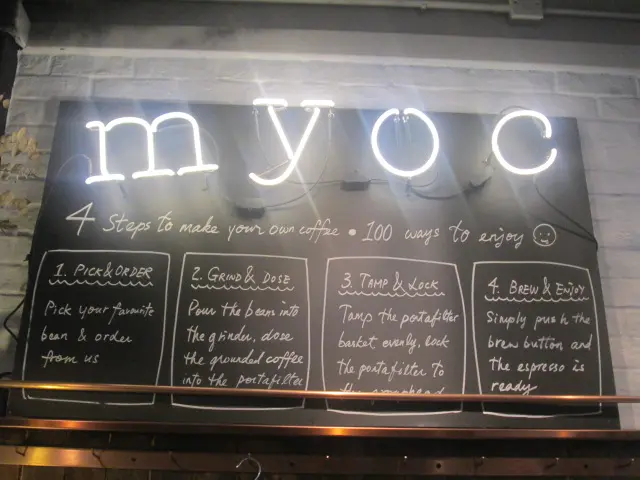 myoc
4 Steps to make your own coffee • 100 ways to enjoy
1. PICK & ORDER
Pick your favourite
bean & order
from us
2. GRIND & DOSE
Pour the beans into
the grinder, dose
the grounded coffee
into the portafilter
3. TAMP & LOCK
Tamp the portafilter
basket evenly, lock
the portafilter to
the grouphead
4. BREW & ENJOY
Simply push the
brew button and
the espresso is
ready